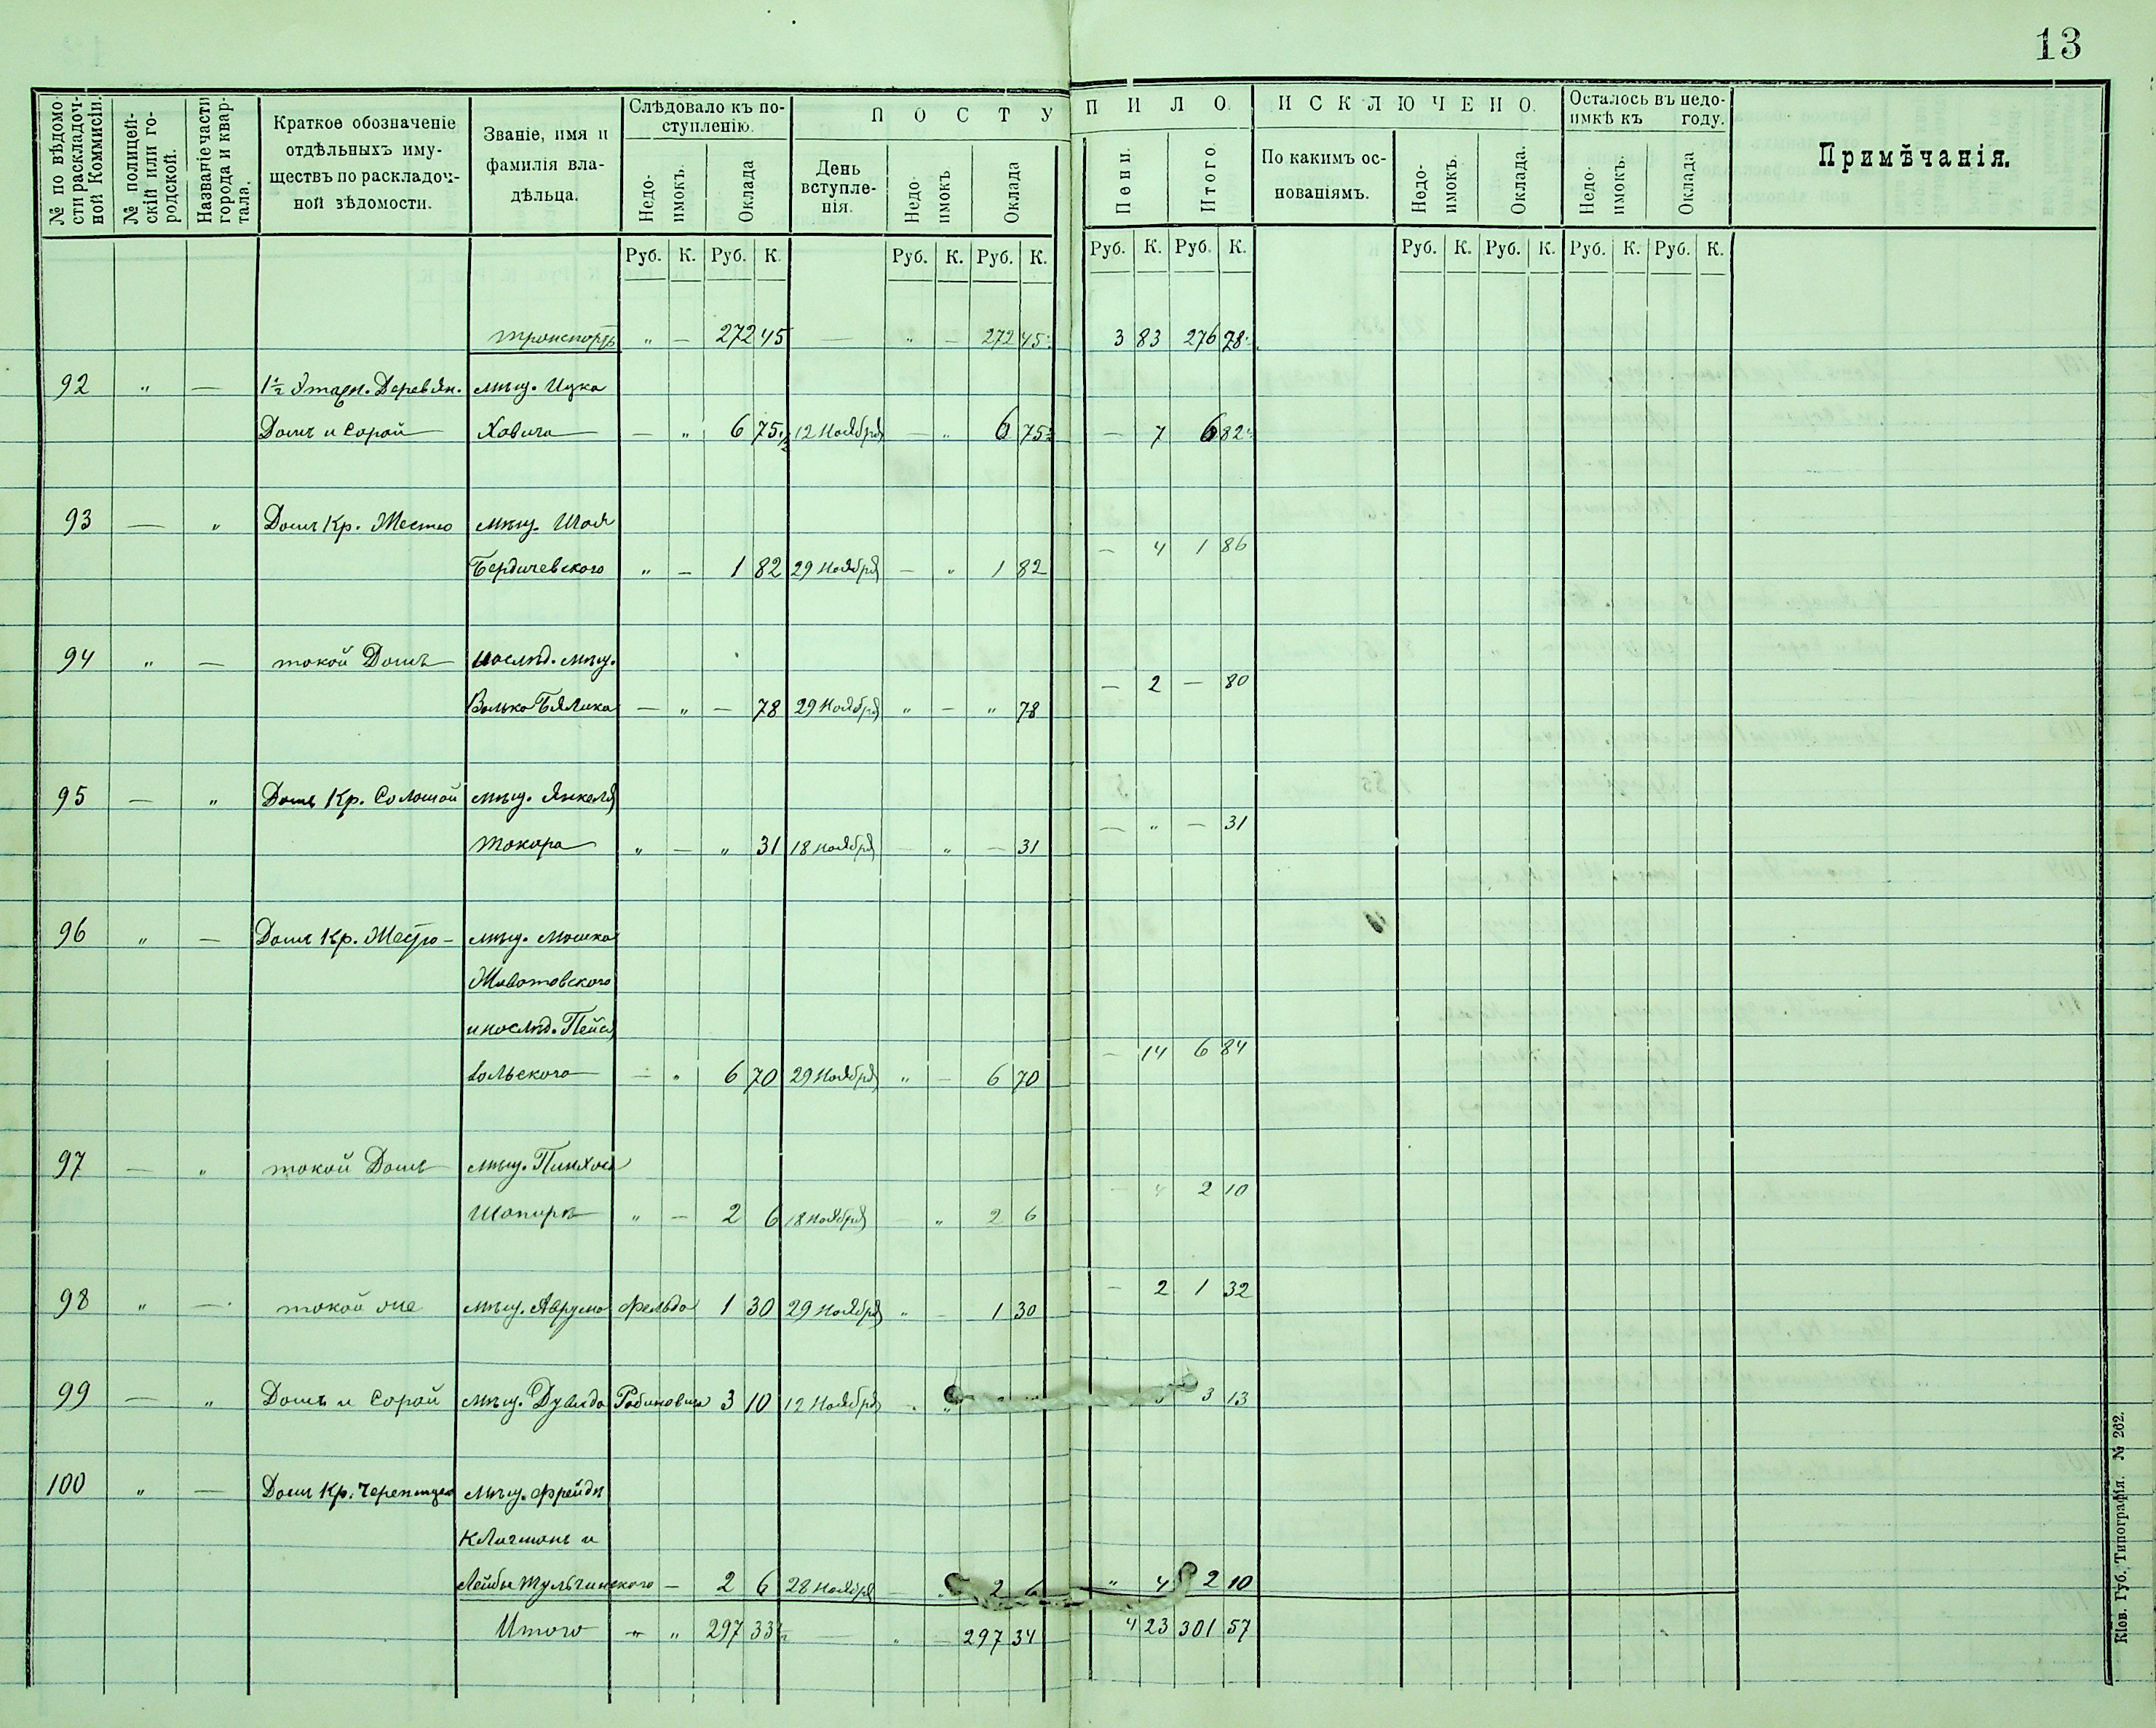 13
№ по вѣдомо-
сти раскладоч-
ной Коммисіи.
№ полицей-
скій или го-
родской.
Названіе части
города и квар-
тала.
Краткое обозначеніе
отдѣльныхъ иму-
ществъ по раскладоч-
ной зѣдомости.
Званіе, имя и
фамилія вла-
дѣльца.
Слѣдовало къ по-
ступленію.
Недо-
имокъ.
Оклада
П О С Т У П И Л О.
День
вступле-
нія.
Недо-
имокъ
Оклада
Пени.
Итого.
И С К Л Ю Ч Е Н О.
По какимъ ос-
нованіямъ.
Недо-
имокъ.
Оклада.
Осталось въ недо-
имкѣ къ году.
Недо-
имокъ
Оклада
Примѣчанія.
Руб. К. Руб. К. Руб. К. Руб. К. Руб. К. Руб. К. Руб. К. Руб. К. Руб. К. Руб. К.
транспортъ " — 272 45 — " — 272 45 3 83 276 78
92 " — 1½ Этажн. Деревян. мѣщ. Ицка
Домъ и Сарай Хавича — " 6 75½ 12 Ноября — " 6 75½ — 7 6 82
93 — " Домъ Кр. Жестю мѣщ. Шая
Бердичевского " — 1 82 29 Ноября — " 1 82 — 4 1 86
94 " — такой Домъ наслѣд. мѣщ.
Волько Бялика — " — 78 29 Ноября " — " 78 — 2 — 80
95 — " Домъ Кр. Соломой мѣщ. Янкеля
Токора " — " 31 18 ноября — " — 31 — " — 31
96 " — Домъ Кр. Жестю — мѣщ. Мошка
Животовского
и наслѣд. Пейса
Вольского — " 6 70 29 Ноября " — 6 70 — 14 6 84
97 — " такой Домъ мѣщ. Пинхоса
Шапиръ " — 2 6 18 Ноября — " 2 6 — 4 2 10
98 " — такой же мѣщ. Аврума Фельда 1 30 29 Ноября " — 1 30 — 2 1 32
99 — " Домъ и Сарай мѣщ. Дувида Рабиновича 3 10 12 Ноября 3 13
100 " — Домъ Кр. Черепицею мѣщ. Фрейды
Клигманъ и
Лейбы Тульчинского — 2 6 28 Ноября 2 6 " 4 2 10
Итого " " 297 33½ — " — 297 34 4 23 301 57
Кіов. Губ. Типографія. № 262.